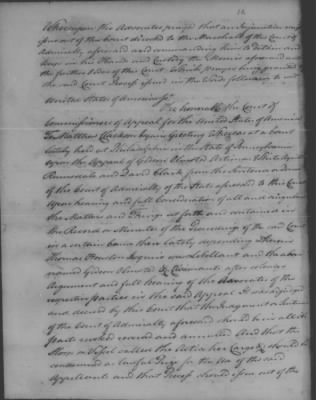 Whereupon the Advocates prayed that an Injunction may
issue out of this Court directed to the Marshall of the Court of
Admiralty aforesaid and commanding him to detain and
keep in his Hands and Custody the Monies aforesaid until
the further Order of this Court Which prayer being granted
the said Court Process issued in the Words following to wit
United States of America ss
The honorable the Court of
Commissioners of Appeal for the United States of America
To Matthew Clarkson Esquire Greeting Whereas at a Court
lately held at Philadelphia in the State of Pennsylvania
upon the Appeal of Gideon Olmsted Artimus White Aquila
Rumsdale and David Clark from the Sentence
of the Court of Admiralty of the State aforesaid to this Court
Upon hearing and full Consideration of all and singular
the Matters and Things set forth and contained in
the Record or Minutes of the Proceedings of the said Court
in a certain Cause there lately depending wherein
Thomas Houston Esquire was Libellant and the above
named Gideon Olmsted & Claimants after solemn
Argument and full Hearing of the Advocates of the
respective parties in the said Appeal It was adjudged
and decreed by this Court that the Judgment or Sentence
of the Court of Admiralty aforesaid should be in all its
parts revoked reversed and annulled And that the
Sloop or Vessel called the Active her Cargo & should be
condemned as lawful Prize for the Use of the said
Appellants and that Process should issue out of the